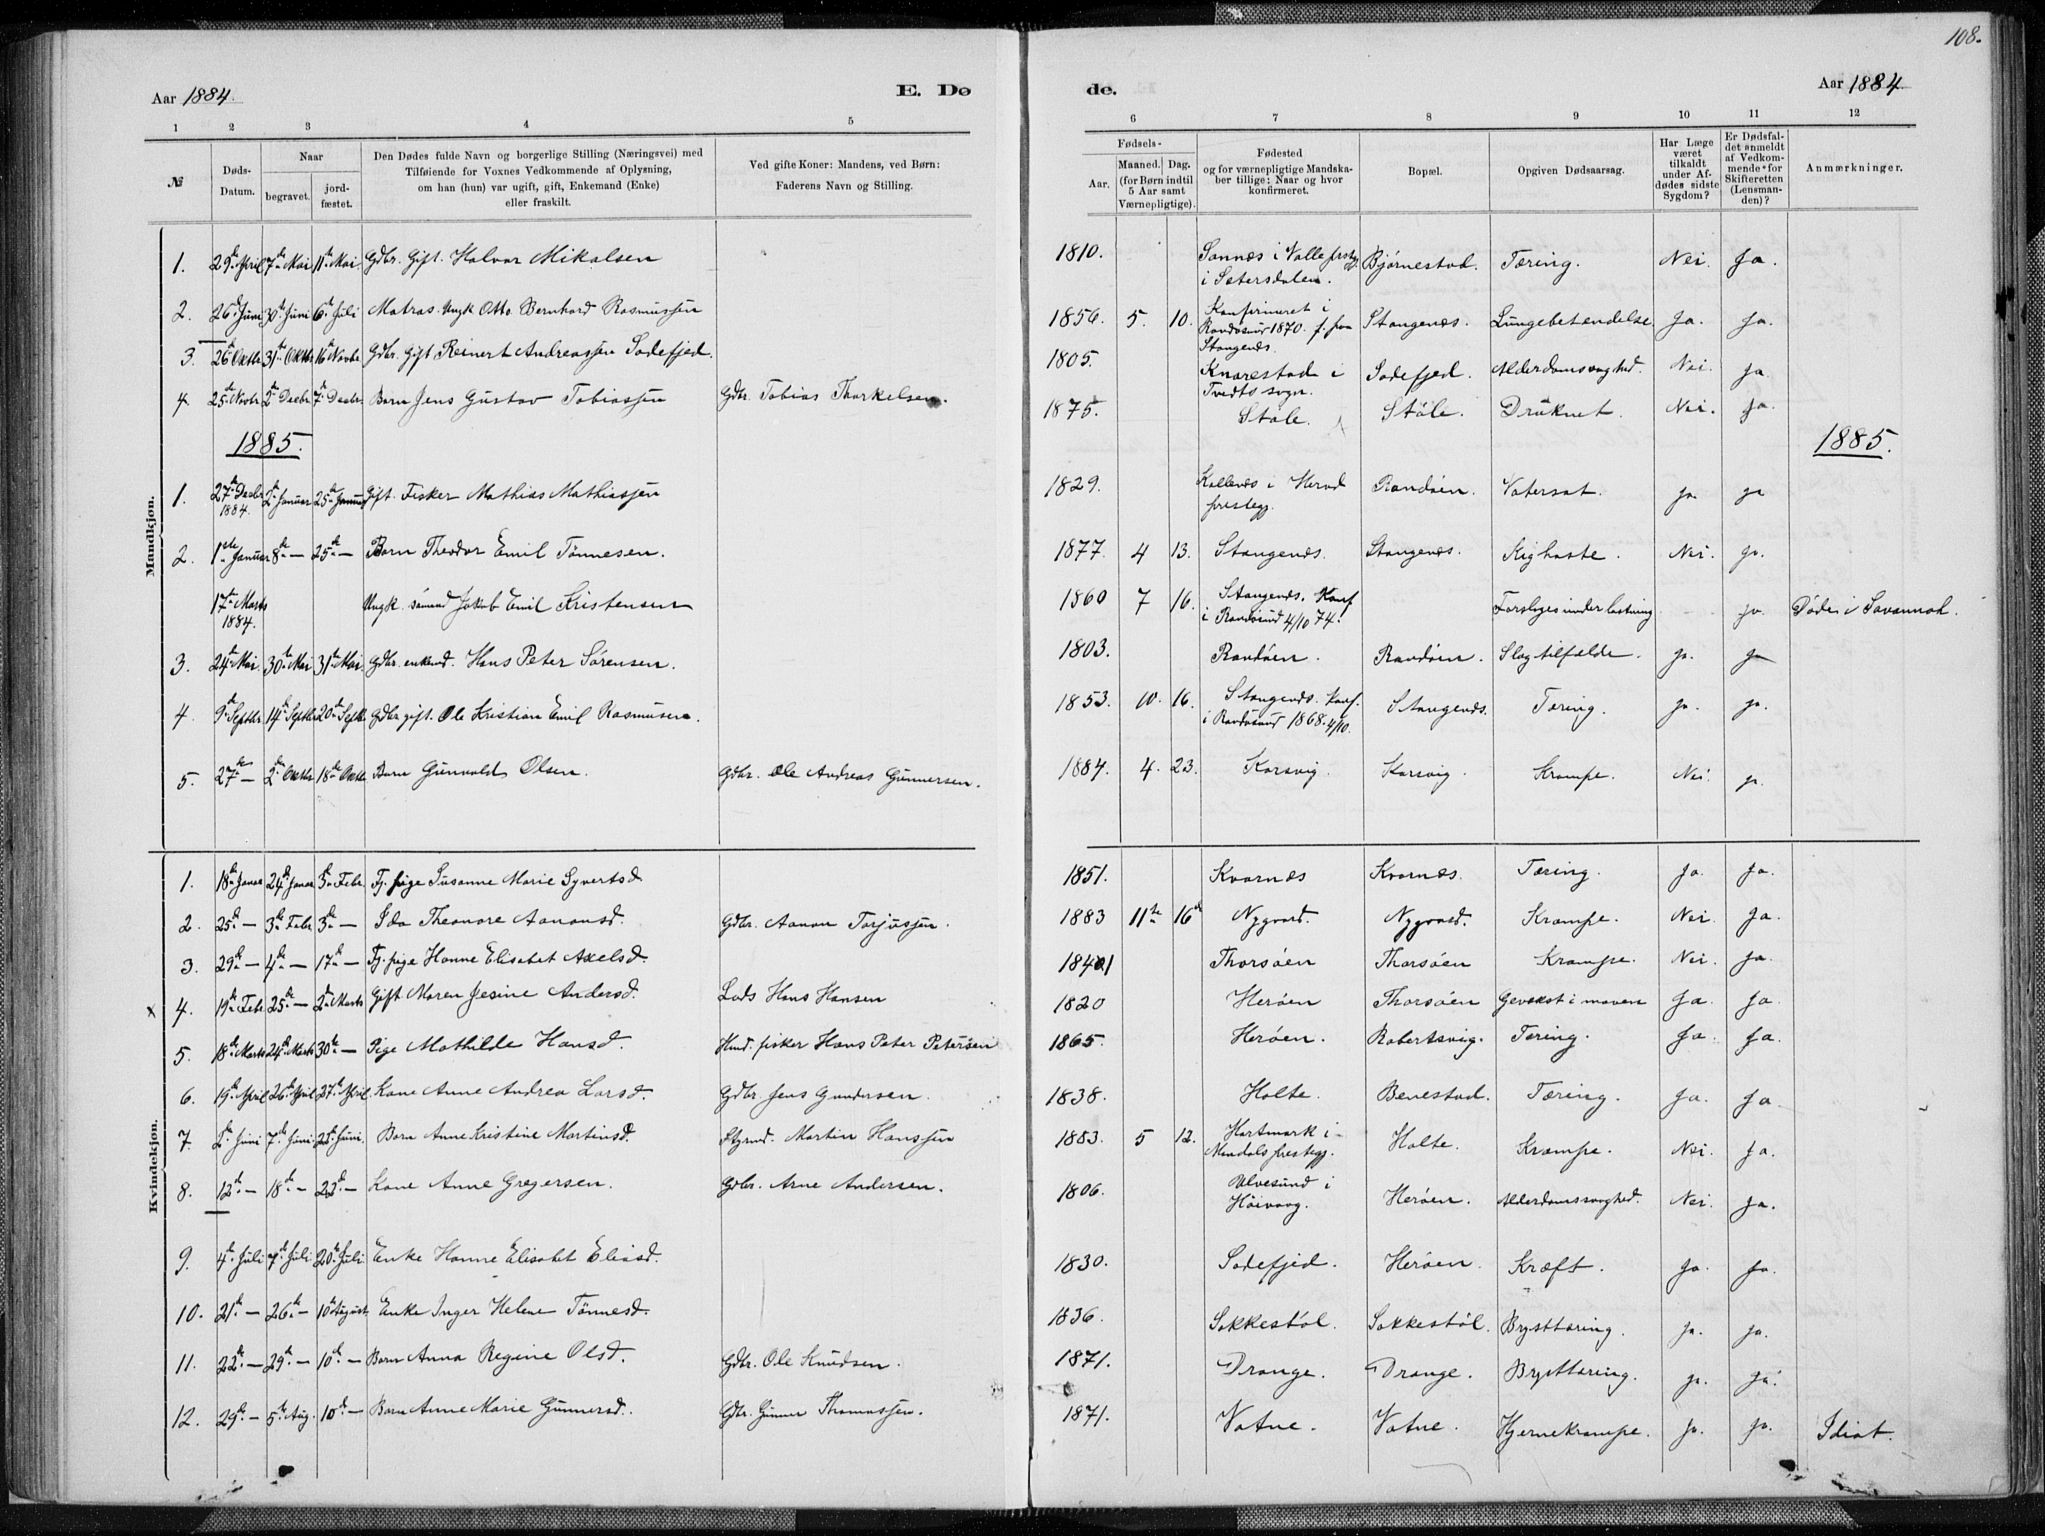 108.
Aar 1884.
E. Dø
de.
Aar 1884
1 2 3 4 5 6 7 8 9 10 11 12
№
Døds-Datum.
Naar
begravet.
jord-fæstet.
Den Dødes fulde Navn og borgerlige Stilling (Næringsvei) med
Tilføiende for Voxnes Vedkommende af Oplysning,
om han (hun) var ugift, gift, Enkemand (Enke)
eller fraskilt.
Ved gifte Koner: Mandens, ved Børn:
Faderens Navn og Stilling.
Fødsels-
Aar.
Maaned. Dag.
(for Børn indtil
5 Aar samt
Værnepligtige).
Fødested
og for værnepligtige Mandska-
ber tillige: Naar og hvor
konfirmeret.
Bopæl.
Opgiven Dødsaarsag.
Har Læge
været
tilkaldt
under Af-
dødes sidste
Sygdom?
Er Dødsfal-
det anmeldt
af Vedkom-
mende for
Skifteretten
(Lensman-
den)?
Anmærkninger.
Mandkjøn.
1. 29de April 7de Mai 11te Mai Gdbr. Gift. Halvor Mikalsen 1810. Sannæs i Valle prstgj. i Setersdalen. Bjørnestad. Tæring. Nei. Ja.
2. 26de Juni 30te Juni 6te Juli Matros. Ungk Otto Bernhard Rasmussen 1856. 5. 10. Konfirmeret i Randøsund 1870. f. paa Stangenæs. Stangenæs. Lungebetændelse Ja. Ja.
3. 26de Oktbr 31te Oktbr 16de Novbr Gdbr. Gift Reinert Andreassen Sodefjed. 1805. Knarestad i Tvedts sogn. Sodefjed. Alderdomsvaghed. Nei. Ja.
4. 25de Novbr 2de Decbr. 7de Decbr. Barn Jens Gustav Tobiassen Gdbr. Tobias Thorkelsen. 1875. Støle. Støle. Druknet. Nei. Ja.
1885. 1885.
1. 27de Decbr 1884. 2de Januar 25de Januar Gift. Fisker Mathias Mathiassen 1829. Kallenæs i Herad prestegj. Randøen. Vatersot. ja. ja
2. 1ste Januar 8de — 25de — Barn Theodor Emil Tønnesen. 1877. 4 13. Stangenæs. Stangenæs. Kighoste. Nei. ja.
17de Marts 1884. Ungk. sømand Jakob Emil Kristensen 1860 7 16. Stangenæs. Konf i Randøsund 4/10 74. under lastning ja. Døde i Savannah.
3. 24de Mai 30te Mai 31te Mai Gdbr. enkemd. Hans Peter Sørensen. 1803. Randøen. Randøen. Slagtilfælde. ja. ja
4. 9de Septbr. 14de Septbr 20de Septb. Gdbr gift. Ole Kristian Emil Rasmusen. 1853. 10. 16. Stangenæs. Konf. i Randøsund 1868. 4/10. Stangenæs. Tæring. ja. ja.
5. 27de — 2den Oktbr 18de Oktb Barn Gunvald Olsen. Gdbr. Ole Andreas Gunnersen. 1884. 4. 23. Korsvig. Korsvig. Krampe. Nei. ja.
Kvindekjøn.
1. 18de Januar 24de Januar 5te Febr. Tj. pige Susanne Marie Syvertsd 1851. Kvarnæs Kvarnæs. Tæring. Ja. Ja.
2. 25de — 3de Febr. 3de — Ida Theonore Aanonsd. Gdbr. Aanon Torjussen. 1883 11te 16de Nygaard. Nygaard. Krampe. Nei. Ja.
3. 29de — 4de — 17de — Tj. pige Hanne Elisabet Axelsd. 1841 Thorsøen Thorsøen Krampe. Nei. Ja.
x 4. 19de Febr. 25de — 2den Marts Gift Maren Jesine Andersd. Lods Hans Hansen 1820 Herøen Thorsøen Gevækst i maven Ja. Ja.
5. 18de Marts 24de Marts 30te — Pige Mathilde Hansd. Husmd. fisker Hans Peter Petersen 1865. Herøen. Robertsvig. Tæring. Ja. Ja.
6. 19de April 26de April 27de April. Kone Anne Andrea Larsd. Gdbr Jens Gundersen. 1838. Holte. Benestad. Tæring. Ja. Ja.
7. 2den Juni 7de Juni 22de Juni. Barn Anne Kristine Martinsd. Styrmd. Martin Hanssen 1883. 5 12. Hartmark i Mandals prestegj. Holte. Krampe. Nei. Ja.
8. 12te — 18de — 22de — Kone Anne Gregersen. Gdbr. Arne Andersen. 1806. Ulvesund i Høivaag. Herøen. Alderdomssvaghed. Nei. Ja.
9. 4de Juli 7de Juli 20de Juli Enke Hanne Elisabet Eliasd. 1830. Sodefjed. Herøen. Kræft. Ja. Ja.
10. 21de — 26de — 10de August Enke Inger Helene Tønnesd. 1836. Sokkestøl. Sokkestøl. Brysttæring. ja. ja.
11. 22de — 29de — 10de — Barn Anna Regine Olsd. Gdbr. Ole Knudsen. 1871. Drange. Drange. Brysttæring. ja. ja.
12. 29de — 5te Aug. 10de — Barn Anne Marie Gunnersd. Gdbr. Gunner Thomassen. 1871. Vatne. Vatne. Hjernekrampe. ja. ja. Idiot.